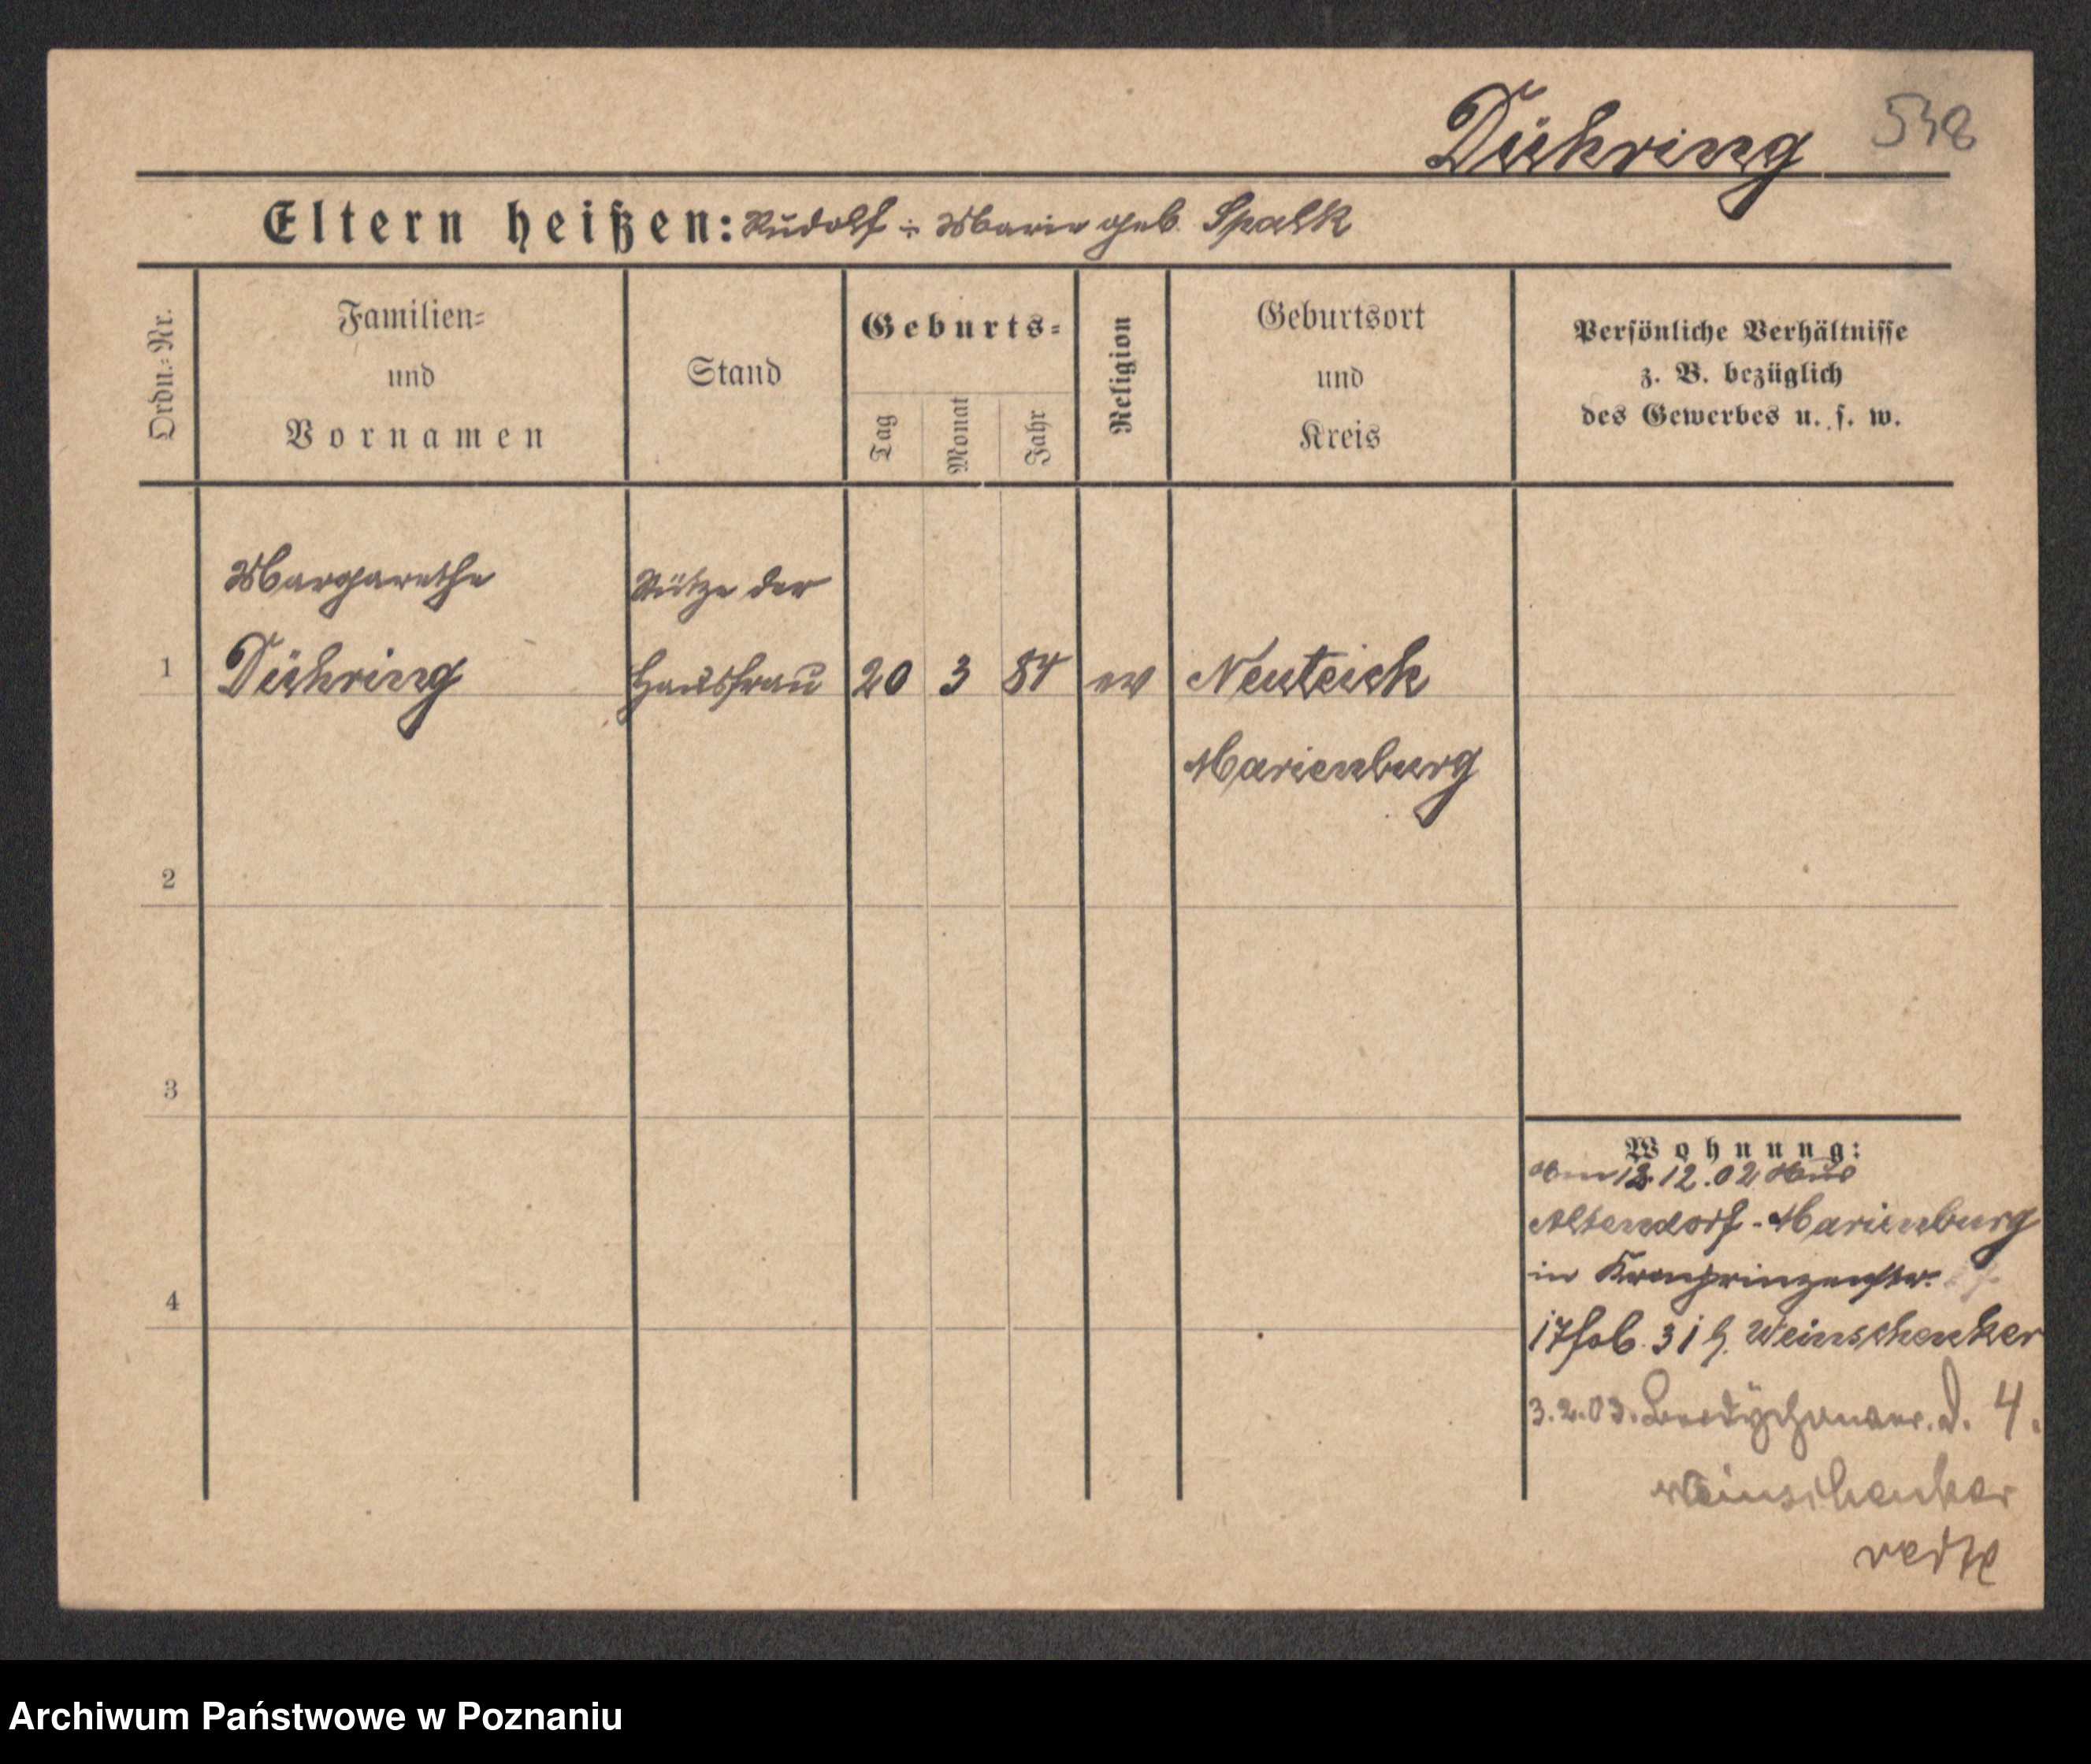 Dühring 548
Eltern heißen: Rudolf ÷ Marie geb. Spalk
Ordn.=Nr.
Familien=
und
Vornamen
Stand
Geburts=
Tag
Monat
Jahr
Religion
Geburtsort
und
Kreis
Persönliche Verhältnisse
z. B. bezüglich
des Gewerbes u. s. w.
Margarethe
Stütze der
1 Dühring Hausfrau 20 3 84 ev Neuteich
Marienburg
2
3
4
Wohnung:
Am 12.12.02 Aus
Altendorf-Marienburg
in Kronprinzenstr.
17 31 b. Weinschenker
3.2.03. 4.
Weinschenker